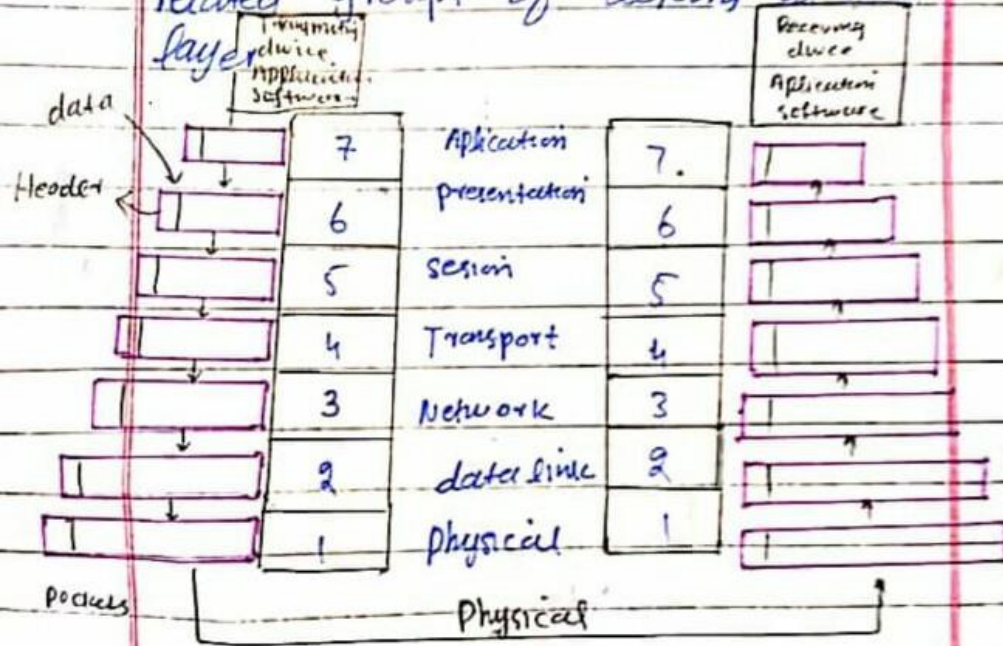 related groups of
layer
Transmitting
device
Application
Software
Receiving
device
Aplication
software
data
Header
7 Aplication 7.
6 presentation 6
5 sesion 5
4 Transport 4
3 Network 3
2 data link 2
1 physical 1
Pockets
Physical